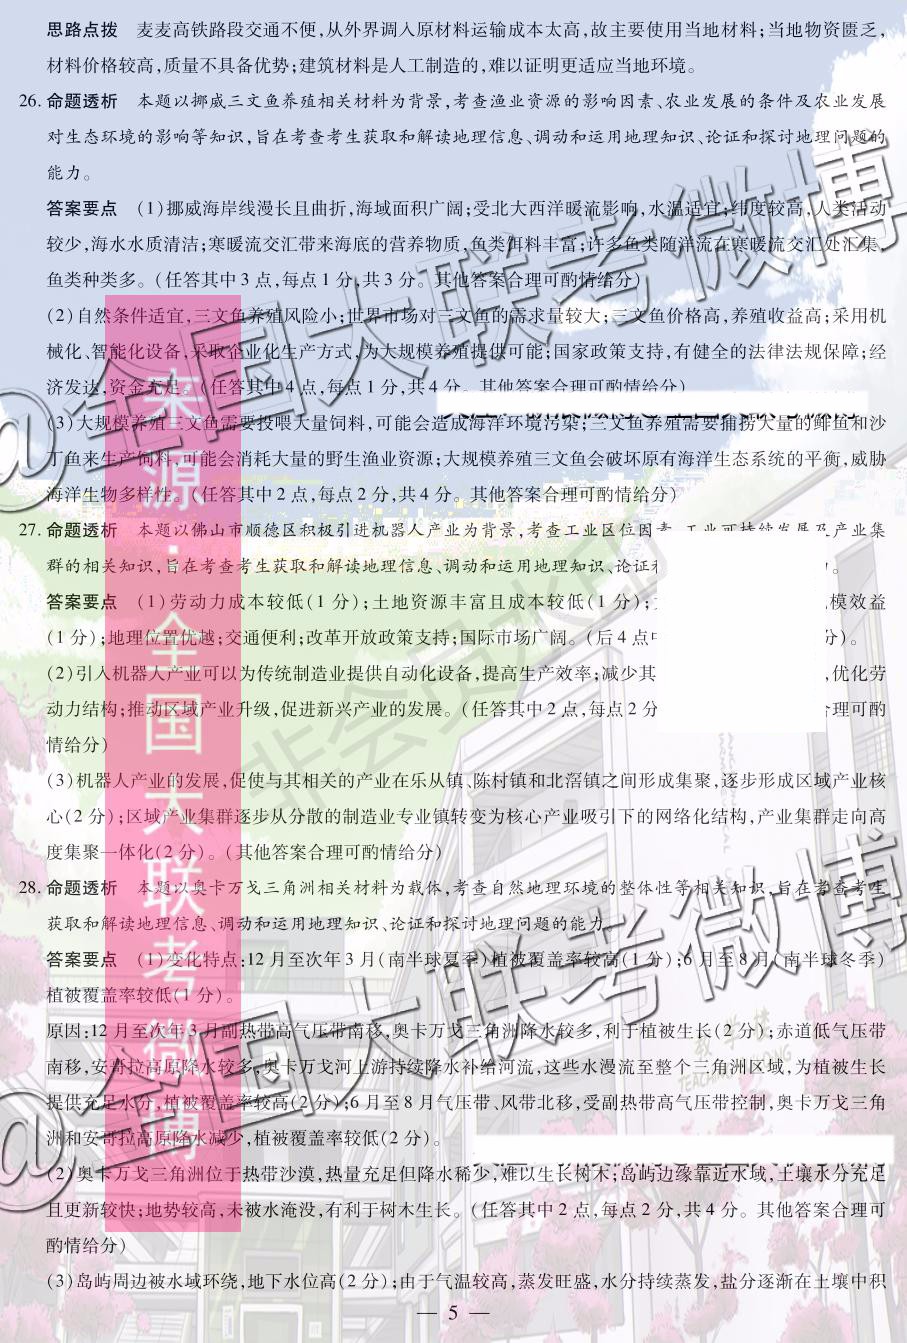 思路点拨 麦麦高铁路段交通不便,从外界调入原材料运输成本太高,故主要使用当地材料;当地物资匮乏,
材料价格较高,质量不具备优势;建筑材料是人工制造的,难以证明更适应当地环境。
26. 命题透析 本题以挪威三文鱼养殖相关材料为背景,考查渔业资源的影响因素、农业发展的条件及农业发展
对生态环境的影响等知识,旨在考查考生获取和解读地理信息、调动和运用地理知识、论证和探讨地理问题的
能力。
答案要点 (1)挪威海岸线漫长且曲折,海域面积广阔;受北大西洋暖流影响,水温适宜;纬度较高,人类活动
较少,海水水质清洁;寒暖流交汇带来海底的营养物质,鱼类饵料丰富;许多鱼类随洋流在寒暖流交汇处汇集,
鱼类种类多。(任答其中3点,每点1分,共3分。其他答案合理可酌情给分)
(2)自然条件适宜,三文鱼养殖风险小;世界市场对三文鱼的需求量较大;三文鱼价格高,养殖收益高;采用机
械化、智能化设备,采取企业化生产方式,为大规模养殖提供可能;国家政策支持,有健全的法律法规保障;经
济发达,资金充足。(任答其中4点,每点1分,共4分。其他答案合理可酌情给分)
(3)大规模养殖三文鱼需要投喂大量饲料,可能会造成海洋环境污染;三文鱼养殖需要捕捞大量的鲱鱼和沙
丁鱼来生产饲料,可能会消耗大量的野生渔业资源;大规模养殖三文鱼会破坏原有海洋生态系统的平衡,威胁
海洋生物多样性。(任答其中2点,每点2分,共4分。其他答案合理可酌情给分)
27. 命题透析 本题以佛山市顺德区积极引进机器人产业为背景,考查工业区位因素、工业可持续发展及产业集
群的相关知识,旨在考查考生获取和解读地理信息、调动和运用地理知识、论证
答案要点 (1)劳动力成本较低(1分);土地资源丰富且成本较低(1分); 模效益
(1分);地理位置优越;交通便利;改革开放政策支持;国际市场广阔。(后4点 分)。
(2)引入机器人产业可以为传统制造业提供自动化设备,提高生产效率;减少其 ,优化劳
动力结构;推动区域产业升级,促进新兴产业的发展。(任答其中2点,每点2分 合理可酌
情给分)
(3)机器人产业的发展,促使与其相关的产业在乐从镇、陈村镇和北滘镇之间形成集聚,逐步形成区域产业核
心(2分);区域产业集群逐步从分散的制造业专业镇转变为核心产业吸引下的网络化结构,产业集群走向高
度集聚一体化(2分)。(其他答案合理可酌情给分)
28. 命题透析 本题以奥卡万戈三角洲相关材料为载体,考查自然地理环境的整体性等相关知识,旨在考查考生
获取和解读地理信息、调动和运用地理知识、论证和探讨地理问题的能力。
答案要点 (1)变化特点:12月至次年3月(南半球夏季)植被覆盖率较高(1分);6月至8月(南半球冬季)
植被覆盖率较低(1分)。
原因:12月至次年3月副热带高气压带南移,奥卡万戈三角洲降水较多,利于植被生长(2分);赤道低气压带
南移,安哥拉高原降水较多,奥卡万戈河上游持续降水补给河流,这些水漫流至整个三角洲区域,为植被生长
提供充足水分,植被覆盖率较高(2分);6月至8月气压带、风带北移,受副热带高气压带控制,奥卡万戈三角
洲和安哥拉高原降水减少,植被覆盖率较低(2分)。
(2)奥卡万戈三角洲位于热带沙漠,热量充足但降水稀少,难以生长树木;岛屿边缘靠近水域,土壤水分充足
且更新较快;地势较高,未被水淹没,有利于树木生长。(任答其中2点,每点2分,共4分。其他答案合理可
酌情给分)
(3)岛屿周边被水域环绕,地下水位高(2分);由于气温较高,蒸发旺盛,水分持续蒸发,盐分逐渐在土壤中积
— 5 —
来源·全国大联考微博
@全国大联考微博
@全国大联考微博
非会员水印